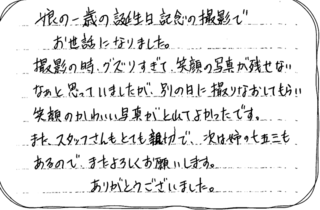 娘の一歳の誕生日記念の撮影で
お世話になりました。
撮影の時、グズりすぎて、笑顔の写真が残せない
なぁと思っていましたが、別の日に撮りなおしてもらい
笑顔のかわいい写真がとれてよかったです。
また、スタッフさんもとても親切で、次は姉の七五三も
あるので、またよろしくお願いします。
ありがとうございました。